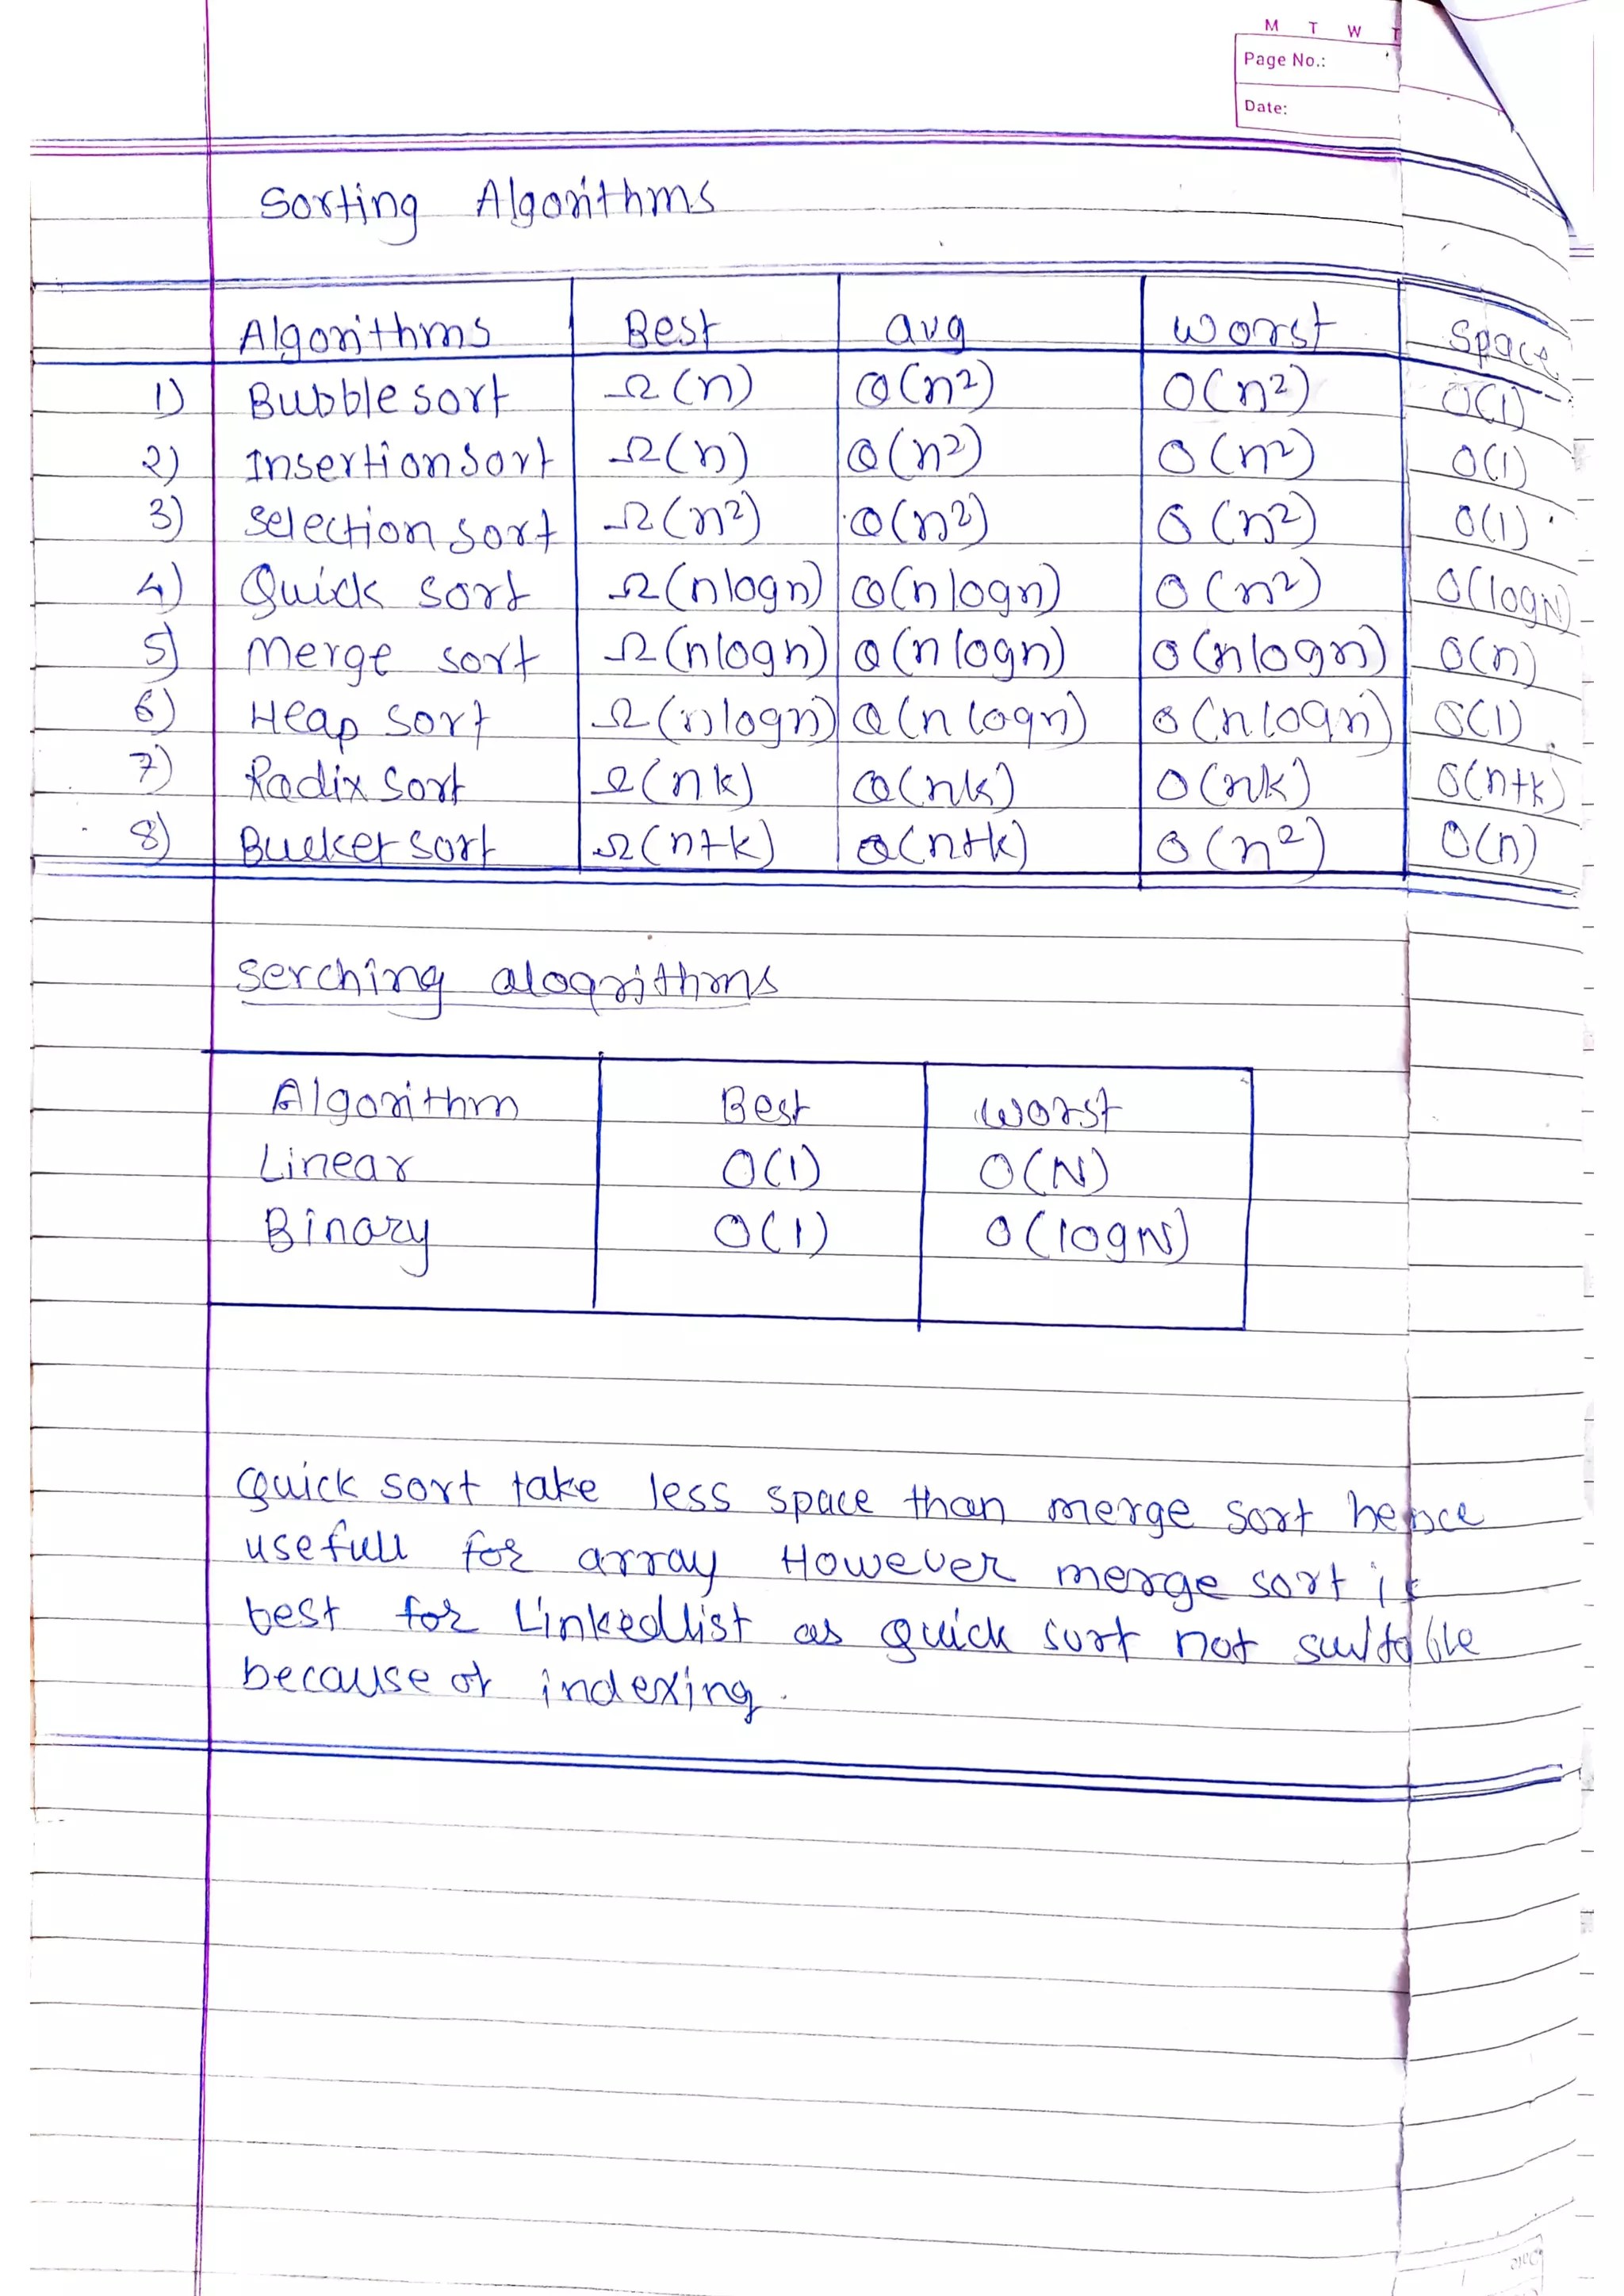 M T W T
Page No.:
Date:
Sorting Algorithms
Algorithms Best avg worst Space
1) Bubble sort Ω(n) Θ(n²) O(n²) O(1)
2) Insertion sort Ω(n) Θ(n²) O(n²) O(1)
3) Selection sort Ω(n²) Θ(n²) O(n²) O(1)
4) Quick sort Ω(nlogn) Θ(nlogn) O(n²) O(logN)
5) Merge sort Ω(nlogn) Θ(nlogn) O(nlogn) O(n)
6) Heap sort Ω(nlogn) Θ(nlogn) O(nlogn) O(1)
7) Radix sort Ω(nk) Θ(nk) O(nk) O(n+k)
8) Bucket sort Ω(n+k) Θ(n+k) O(n²) O(n)
Serching alogrithms
Algorithm Best worst
Linear O(1) O(N)
Binary O(1) O(logN)
Quick sort take less space than merge sort hence
usefull for array However merge sort is
best for Linkedlist as quick sort not suitable
because of indexing.